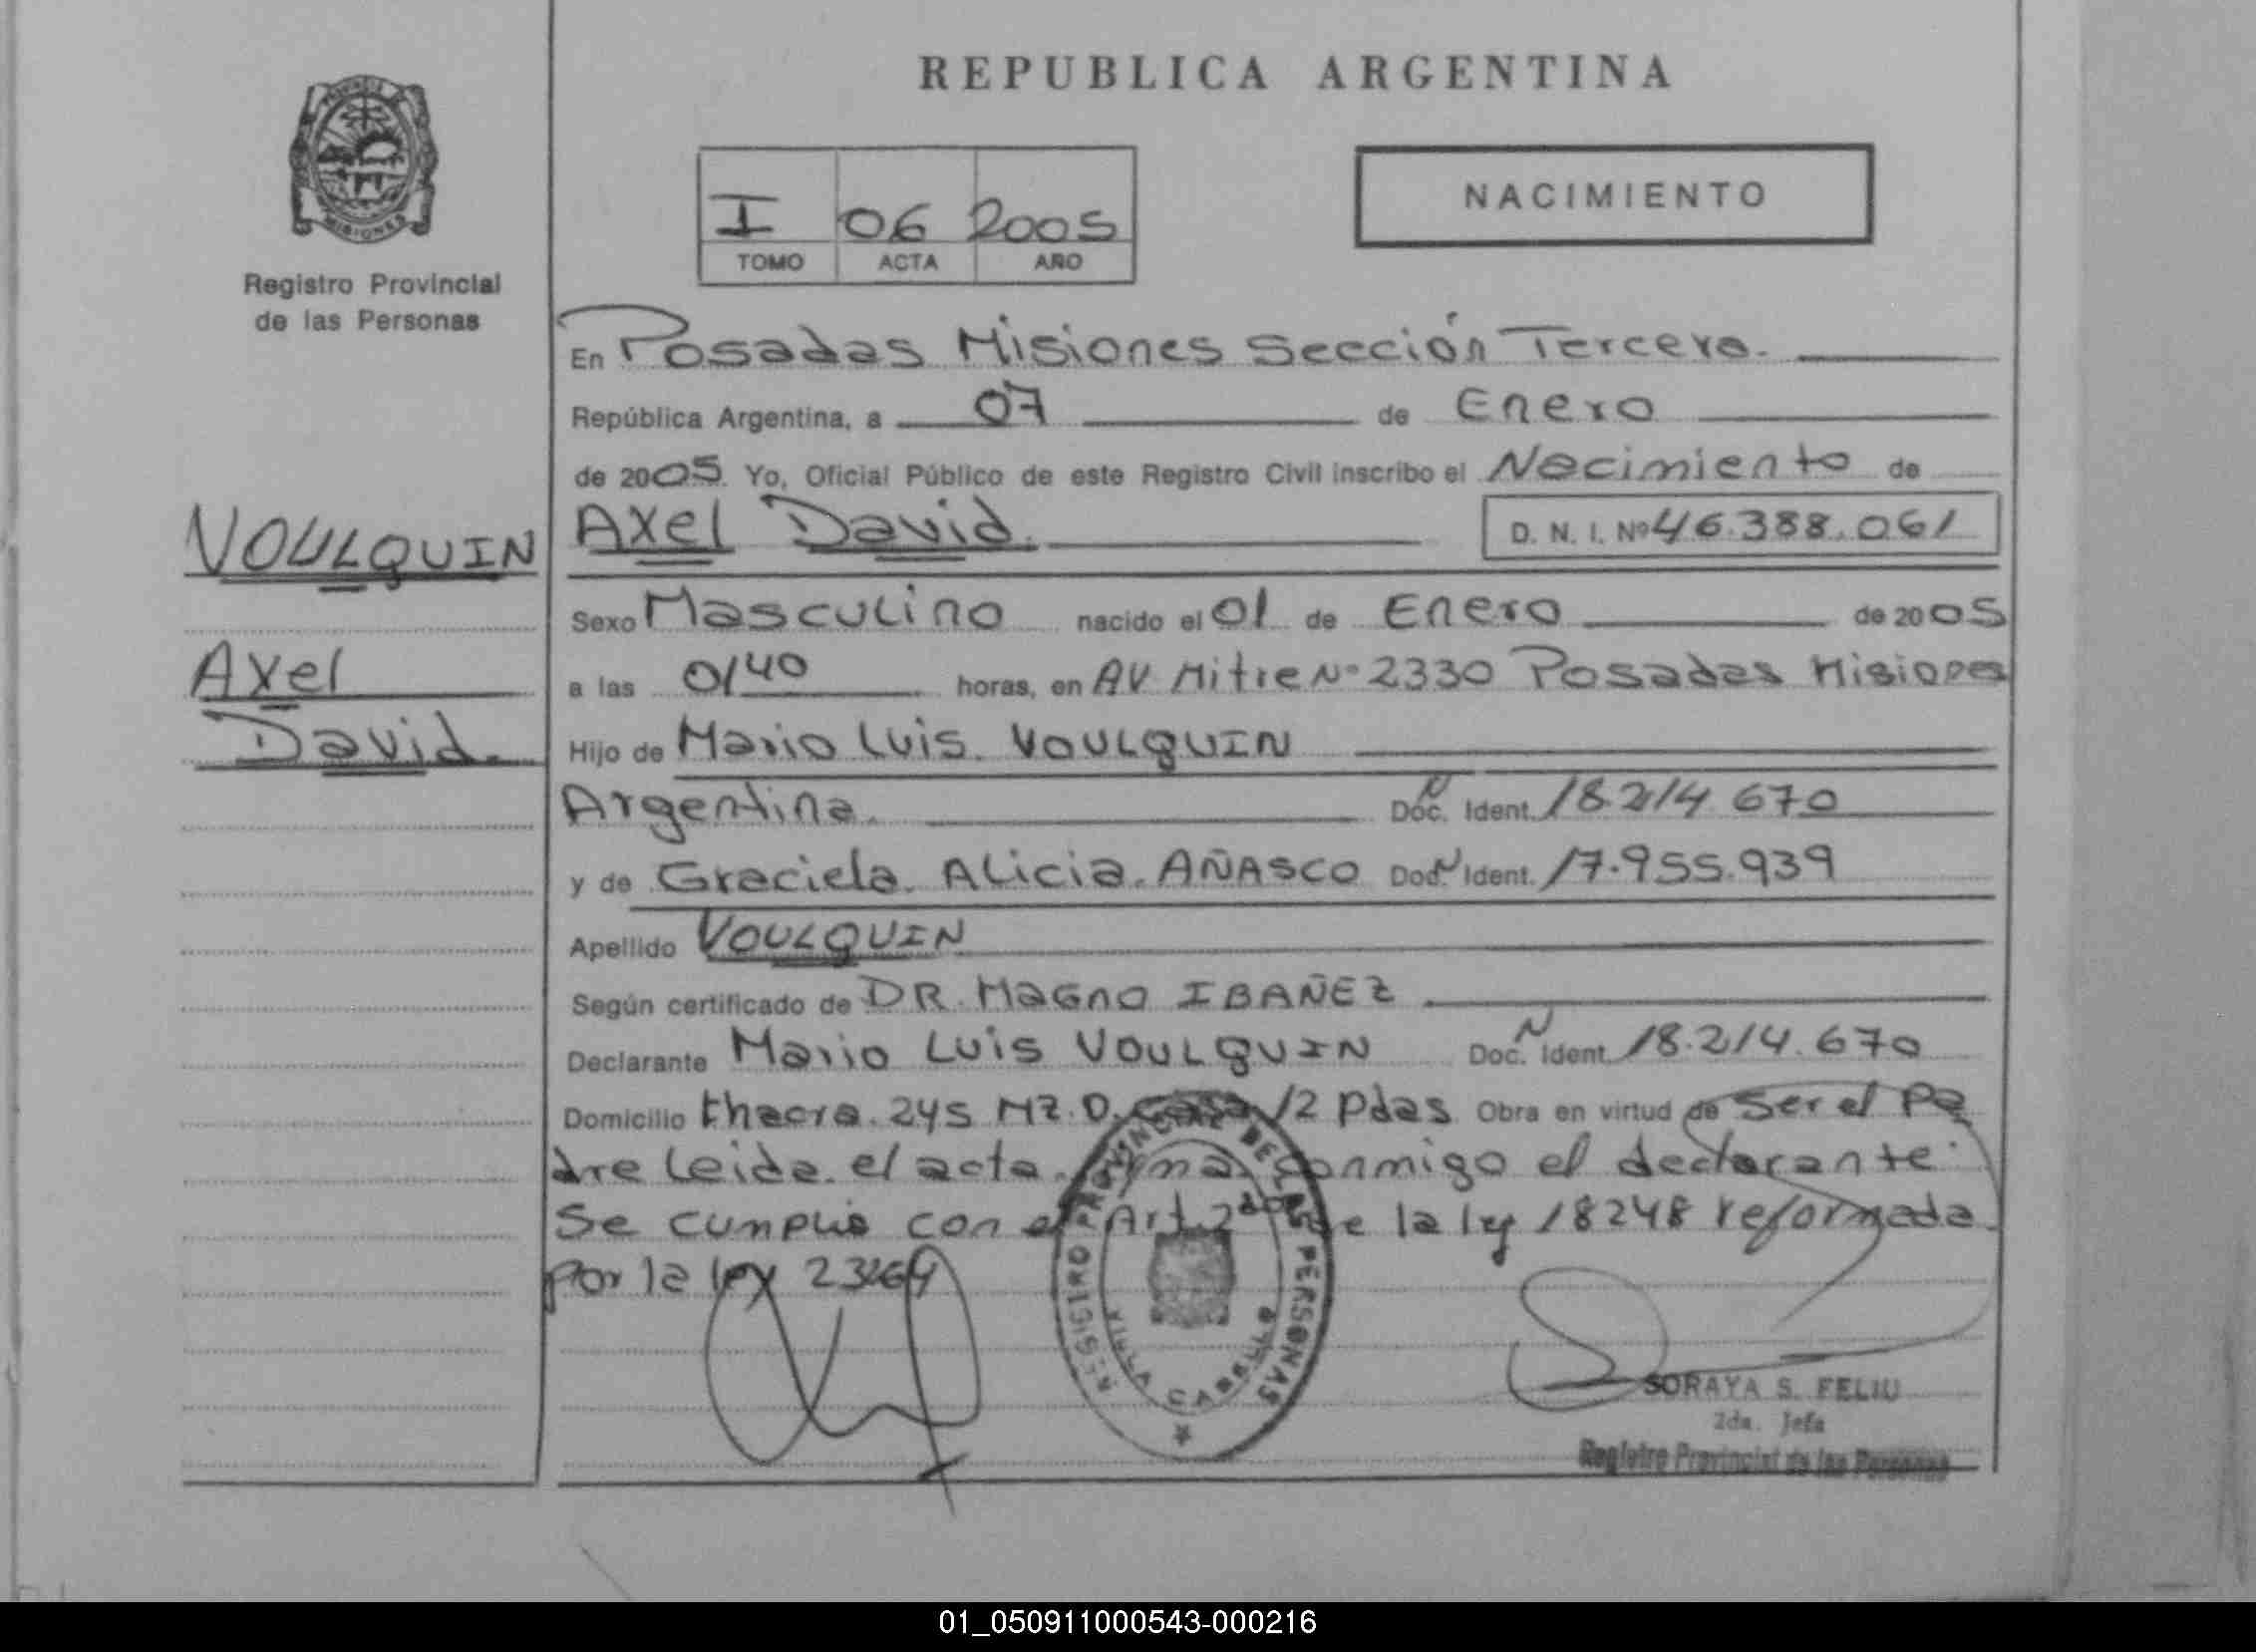 REPUBLICA ARGENTINA
PROVINCIA DE
MISIONES
Registro Provincial
de las Personas
I 06 2005
TOMO ACTA AÑO
NACIMIENTO
En Posadas Misiones Sección Tercera.
República Argentina, a 07 de Enero
de 2005. Yo, Oficial Público de este Registro Civil inscribo el Nacimiento de
VOULQUIN
Axel David.
D. N. I. Nº 46.388.061
Sexo Masculino nacido el 01 de Enero de 2005
Axel
a las 0140 horas, en AV Mitre Nº 2330 Posadas Misiones
David.
Hijo de Mario Luis. VOULQUIN
Argentina. Doc. N Ident. 18.214.670
y de Graciela. Alicia. AÑASCO Doc. N Ident. 17.955.939
Apellido VOULQUIN
Según certificado de DR. MAGNO IBAÑEZ
Declarante Mario Luis VOULQUIN Doc. N Ident. 18.214.670
Domicilio Chacra. 245 MZ. D. Casa 12 Pdas. Obra en virtud de Ser el Pa
dre Leida. el acta. conmigo el declarante.
Se cumplio con el Art. 2do de la ley 18248 reformada
por la ley 23264
REGISTRO PROVINCIAL DE LAS PERSONAS
VILLA CABELLO
SORAYA S. FELIU
2da. Jefa
Registro Provincial de las Personas
01_050911000543-000216